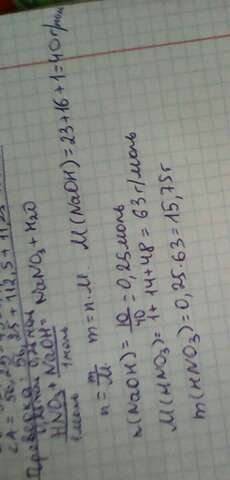 Проверка:
0,25моль
HNO₃ + NaOH = NaNO₃ + H₂O
1моль 1моль
n = m/M m = n·M. M(NaOH) = 23+16+1=40г/моль
n(NaOH) = 10/40 = 0,25моль
M(HNO₃) = 1+14+48 = 63г/моль
m(HNO₃) = 0,25·63=15,75г